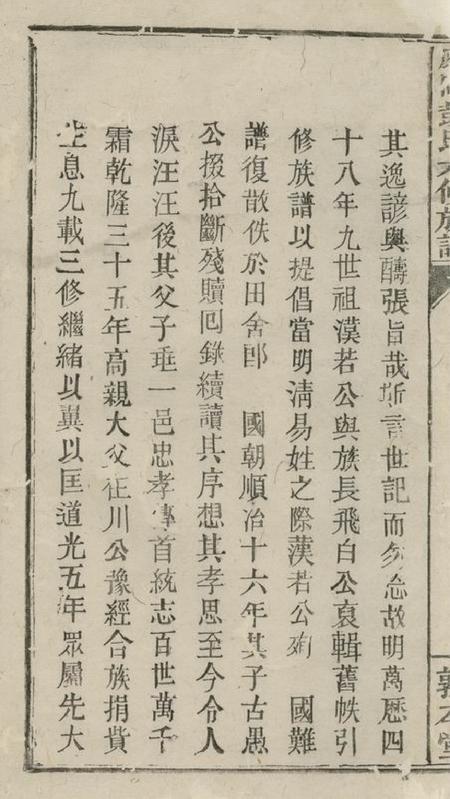 修族譜
其逸諺與譸張旨哉斯言世記而勿忘故明萬歷四
十八年九世祖漢若公與族長飛白公裒輯舊帙引
修族譜以提倡當明淸易姓之際漢若公殉　國難
譜復散佚於田舍郎　國朝順治十六年其子古愚
公掇拾斷殘贖囘錄續讀其序想其孝思至今令人
淚汪汪後其父子垂一邑忠孝傳首統志百世萬千
霜乾隆三十五年高親大父川公豫經合族捐貲
生息九載三修繼緒以翼以匡道光五年眾屬先大